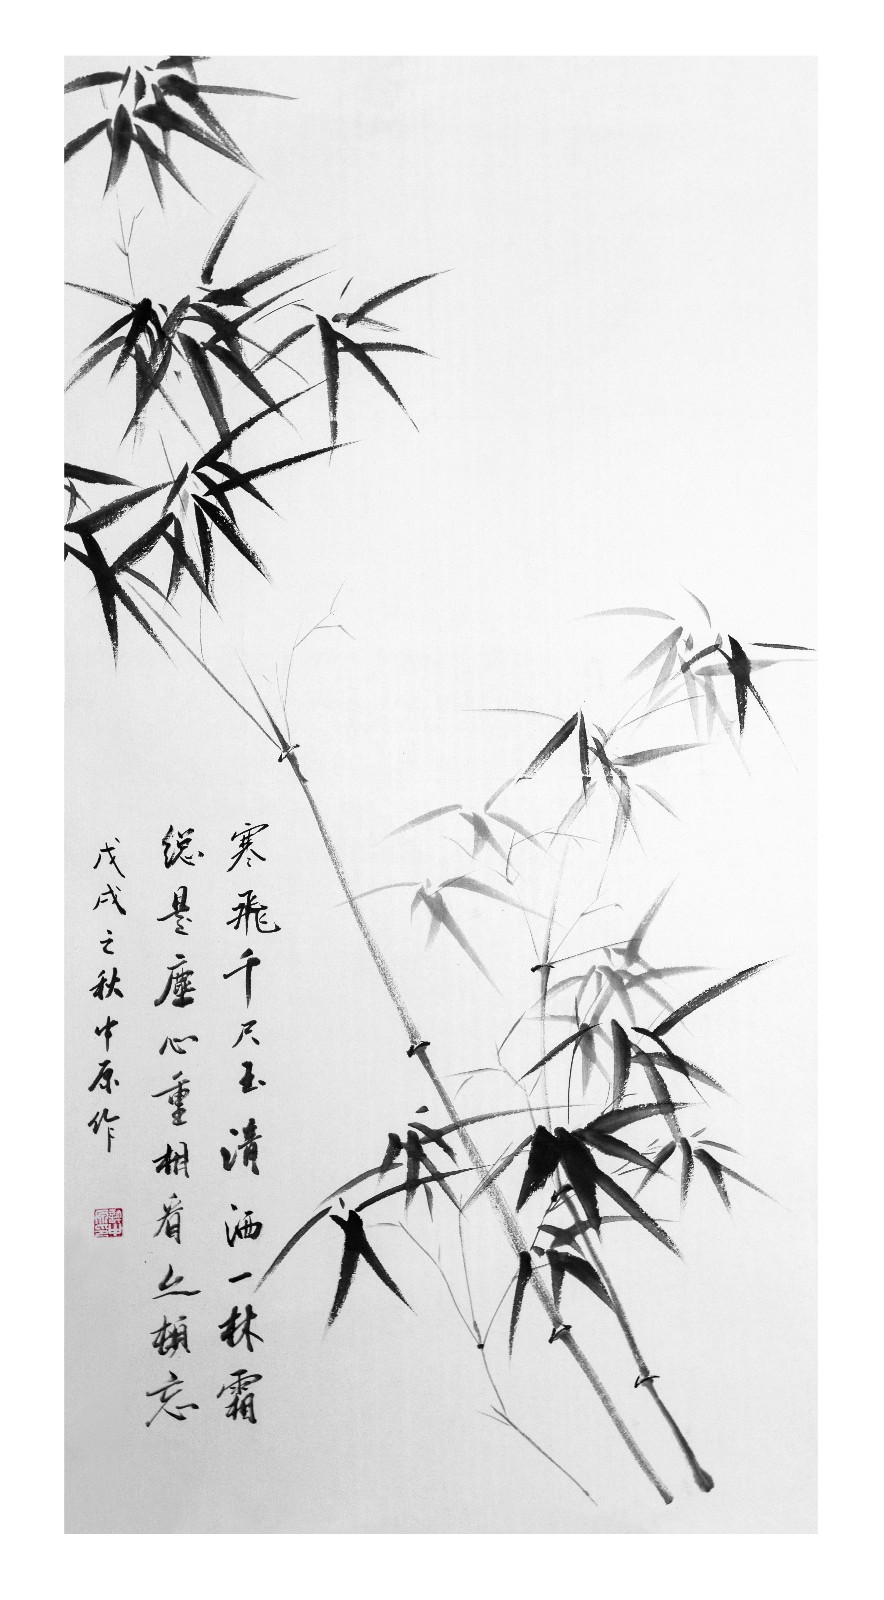 寒飛千尺玉清洒一林霜
縂是塵心重相看亦頓忘
戊戌之秋中原作